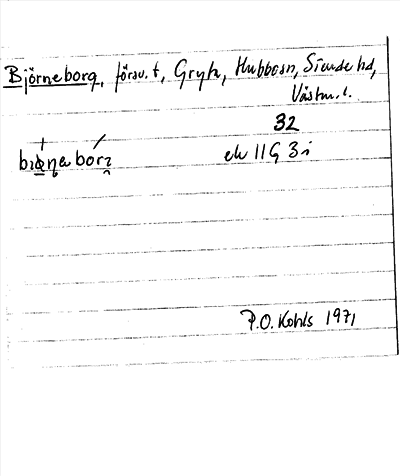 Björneborg, försv. t, Gryta, Hubbosn, Siende hd,
Västm. l.
32
bıöṇa borı
ek 11G 3i
P.O. Kohls 1971